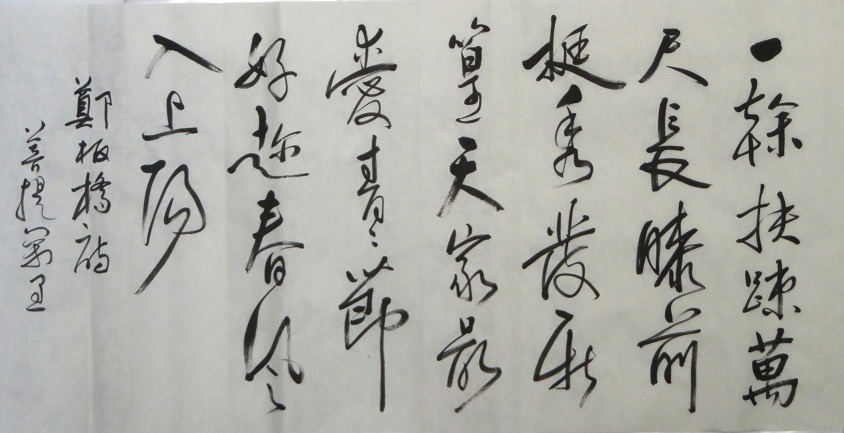 一幹扶疎萬
尺長膝前
挺秀發新
篁天家最
愛青々節
好趁春風
入上陽
鄭板橋詩
菩提